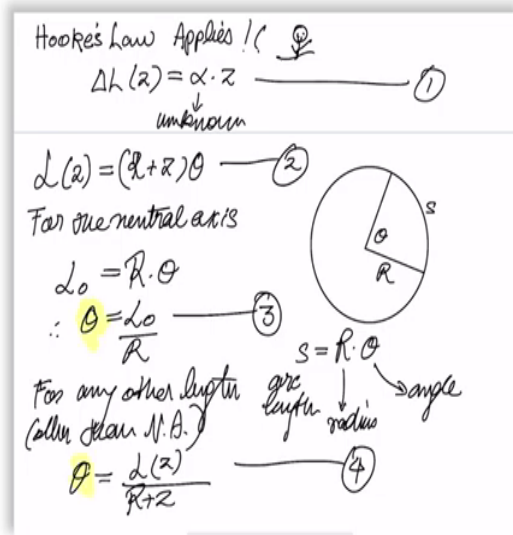 Hooke's Law Applies !(
ΔL(z) = α · z ——— ①
↓
unknown
L(z) = (R+z)θ —— ②
For the neutral axis
L₀ = R·θ
∴ θ = L₀/R —— ③
S
θ
R
S = R·θ
arc length
radius
angle
For any other length
(other than N.A.)
θ = L(z)/R+z —— ④